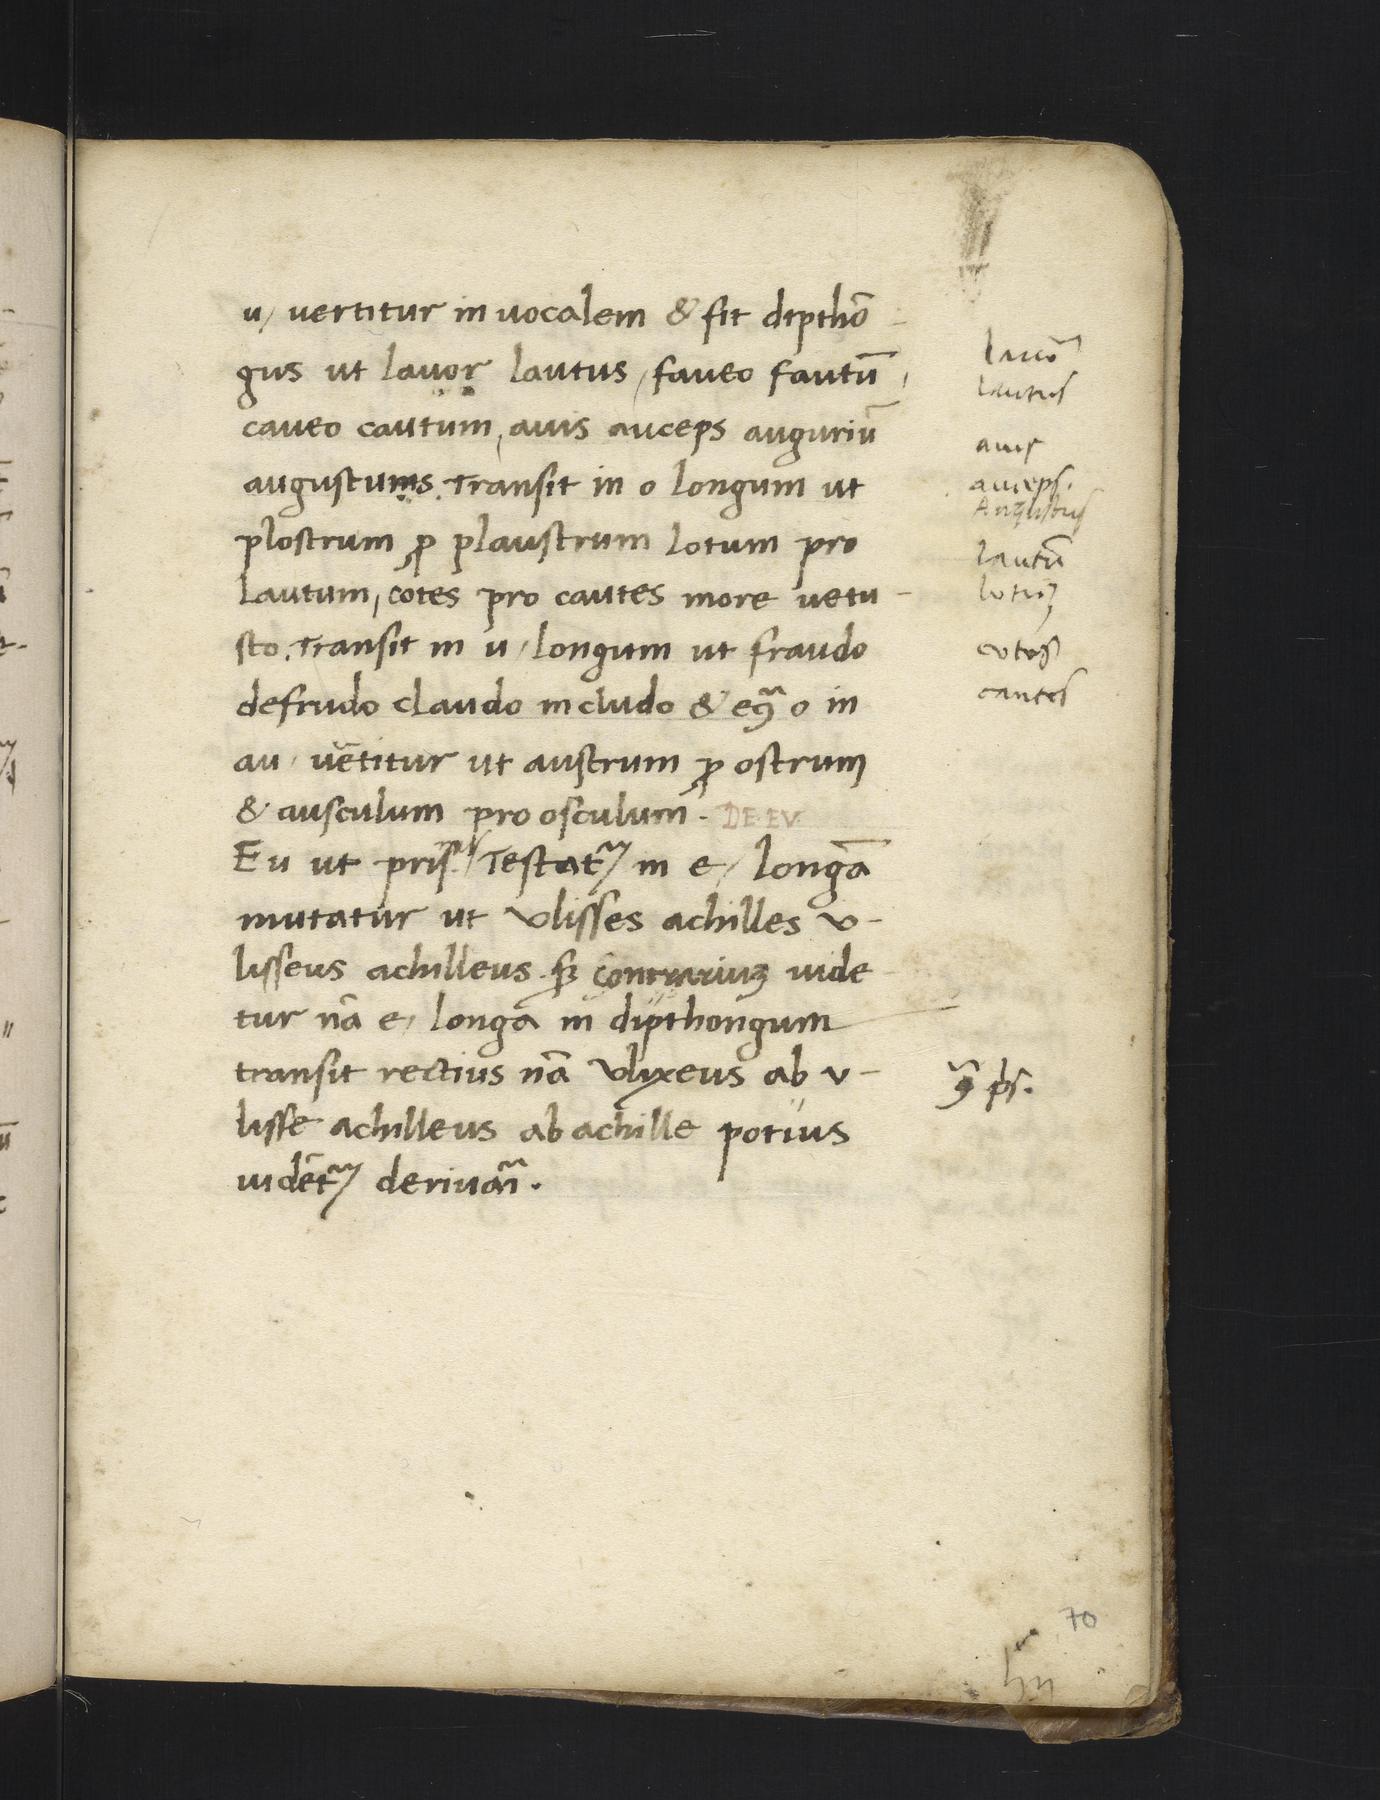 u / vertitur in vocalem & fit dipthō
gus ut lavor lautus, faveo fautū,
caveo cautum, avis auceps auguriū
augustus. Transit in o longum ut
plostrum ꝓ plaustrum lotum pro
lautum, cotes pro cautes more vetu-
sto. Transit in u / longum ut fraudo
defrudo claudo includo & o in
au / vētitur ut austrum ꝓ ostrum
& ausculum pro osculum. DE EV.
Eu ut testat᷑ in e / longā
mutatur ut Vlisses achilles v-
lisseus achilleus. sꝫ contrariuꝫ vide
tur nā e / longa in dipthongum
transit rectius nā Vlixeus ab v-
lisse achilleus ab achille potius
vidēt᷑ derivari.
lauor
lautus
auis
auceps.
Augustus
lautū
lotuꝫ
cotes
cautes
70